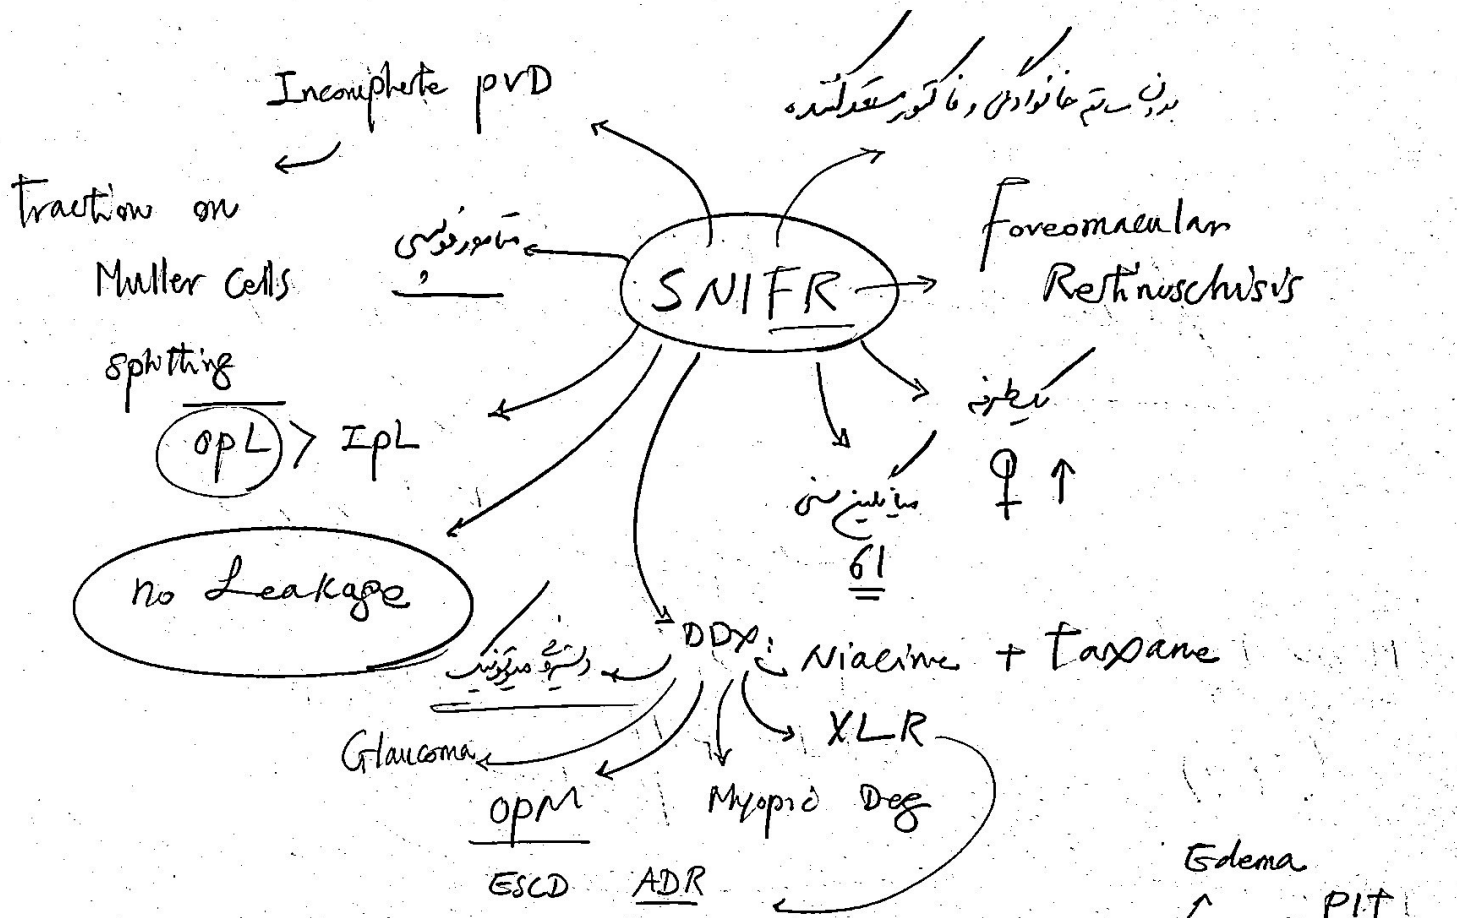 Incomplete PVD
بدون سابقه خانوادگی و فاکتور مستعدکننده
Traction on
Muller Cells
splitting
OPL > IPL
متامورفوپسی
SNIFR
Foveomacular
Retinoschisis
یکطرفه
♀ ↑
میانگین سنی
61
no Leakage
DDX:
Niacine + Taxane
دیستروفی میوتونیک
XLR
Glaucoma
OPM
Myopic Deg
ESCD
ADR
Edema
PIT